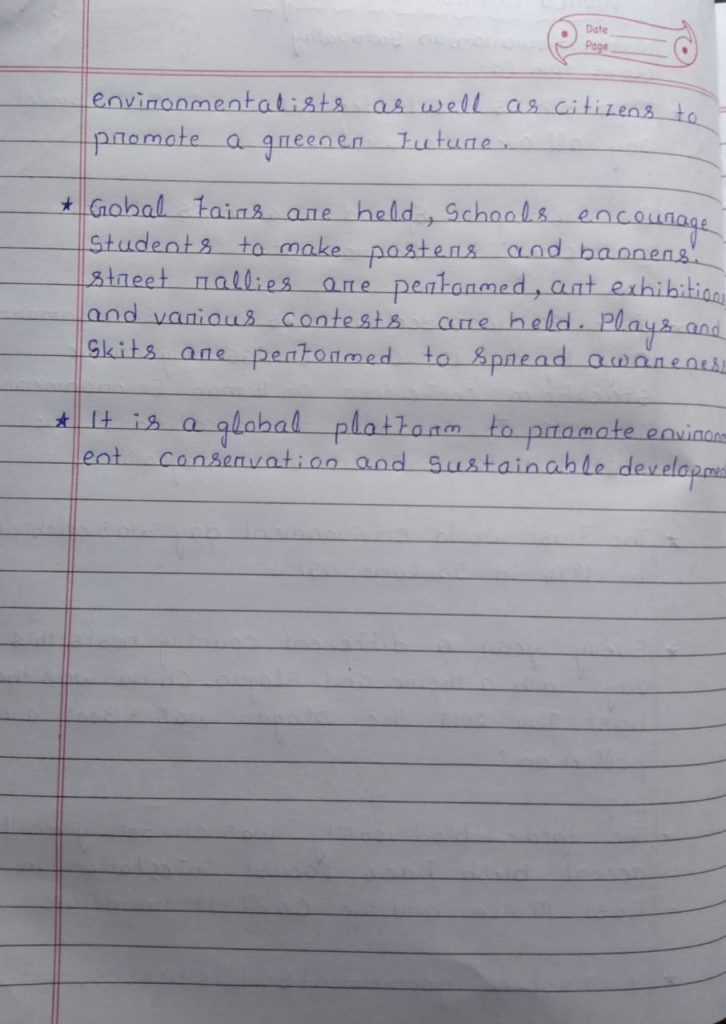 Date
Page
environmentalists as well as citizens to
promote a greener future.
★ Gobal fairs are held, Schools encourage
Students to make posters and banners.
street rallies are performed, art exhibition
and various contests are held. Plays and
Skits are performed to spread awareness
★ It is a global platform to promote environm
ent conservation and sustainable developmen